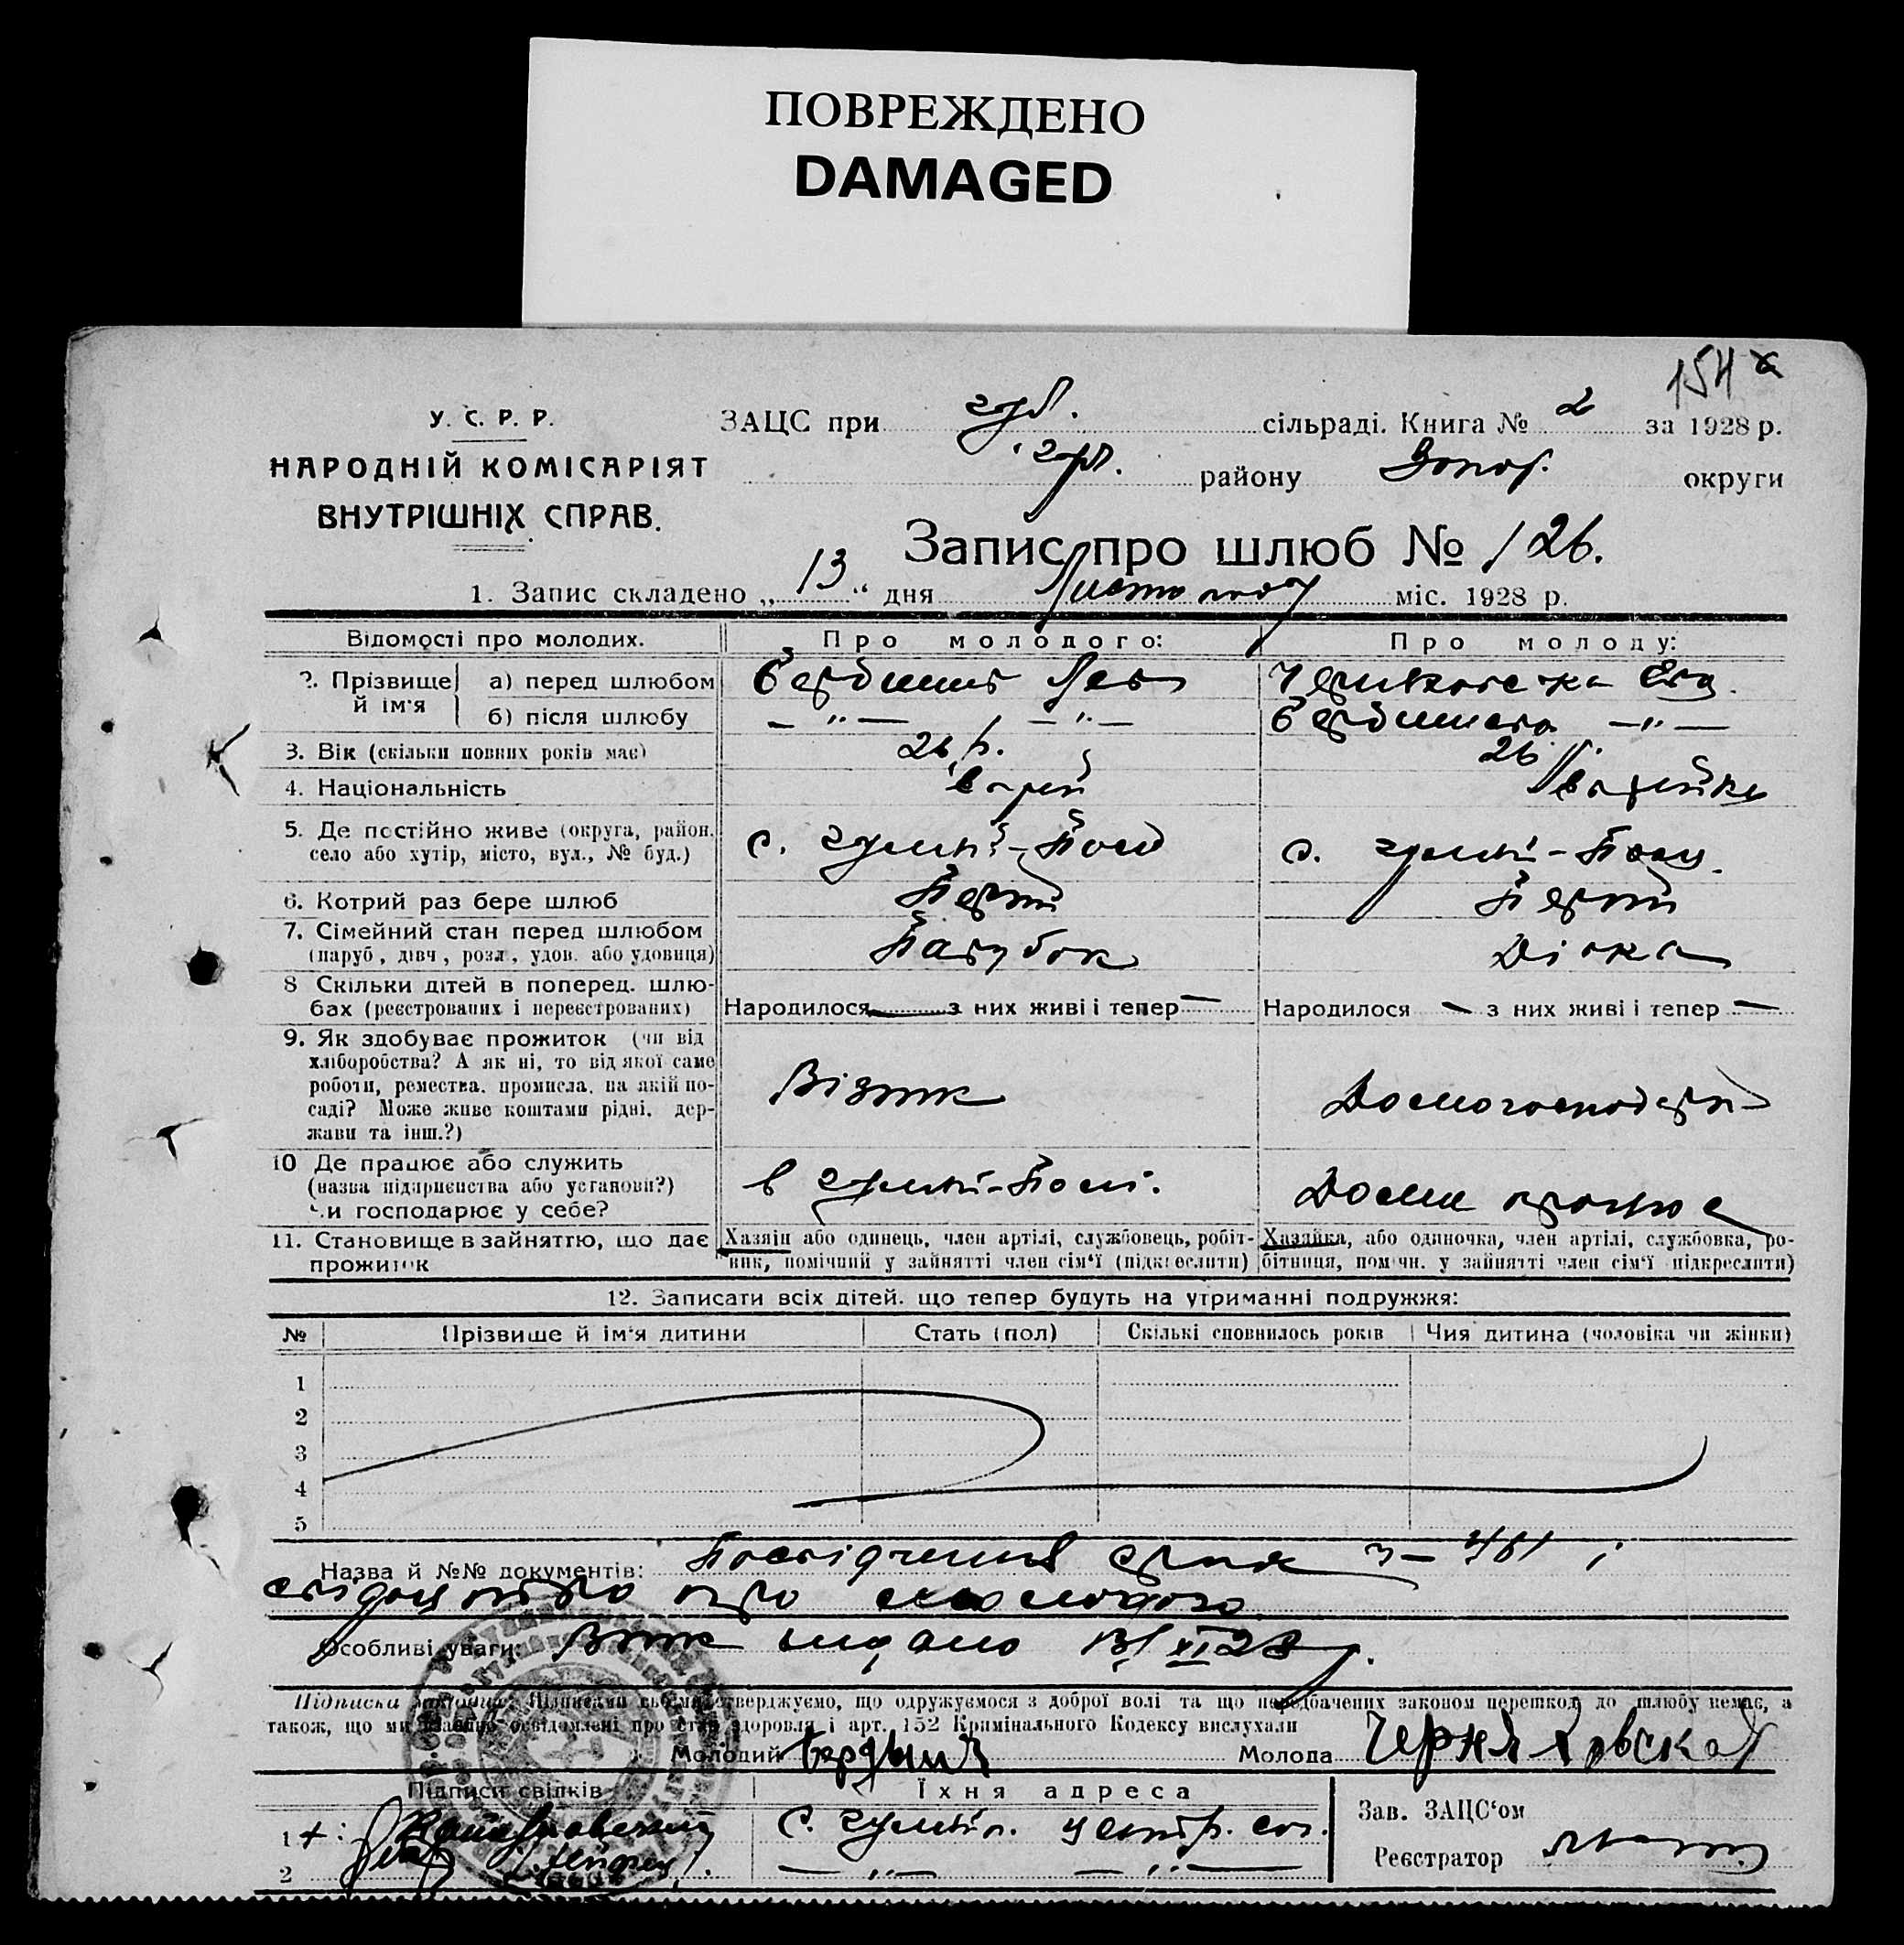 ПОВРЕЖДЕНО
DAMAGED
154
У. С. Р. Р.
НАРОДНІЙ КОМІСАРІЯТ
ВНУТРІШНІХ СПРАВ.
ЗАЦС при сільраді. Книга № 2 за 1928 р.
району Запор. округи
Запис про шлюб № 126.
1. Запис складено „ 13 " дня Листопаду міс. 1928 р.
Відомості про молодих. Про молодого: Про молоду:
2. Прізвище й ім'я
а) перед шлюбом Лев
б) після шлюбу — " — — " — — " —
3. Вік (скільки повних років має) 26 р. 26
4. Національність Єврей Єврейка
5. Де постійно живе (округа, район,
село або хутір, місто, вул., № буд.) с. Гуляй-Поле с. Гуляй-Поле
6. Котрий раз бере шлюб Перший Перший
7. Сімейний стан перед шлюбом
(паруб, дівч, розл, удов. або удовиця) Парубок Дівка
8 Скільки дітей в поперед. шлю-
бах (реєстрованих і нереєстрованих) Народилося — з них живі і тепер — Народилося — з них живі і тепер —
9. Як здобуває прожиток (чи від
хліборобства? А як ні, то від якої саме
роботи, ремества, промисла, на якій по-
саді? Може живе коштами рідні, дер-
жави та інш.?) Візник
10 Де працює або служить
(назва підприєнства або установи?)
Чи господарює у себе? в Гуляй-Полі. Дома працює
11. Становище в зайняттю, що дає
прожиток
Хазяїн або одинець, член артілі, службовець, робіт-
ник, помічний у зайнятті член сім'ї (підкреслити)
Хазяйка, або одиночка, член артілі, службовка, ро-
бітниця, помічн. у зайнятті член сім'ї підкреслити)
12. Записати всіх дітей. що тепер будуть на утриманні подружжя:
№ Прізвище й ім'я дитини Стать (пол) Скількі сповнилось років Чия дитина (чоловіка чи жінки)
1
2
3
4
5
Назва й №№ документів: Посвідчення
про молодого
Особливі уваги: Витяг видано 13/XI 28 р.
Підписка молодих: Підписами своїми стверджуємо, що одружуємося з доброї волі та що передбачених законом перешкод до шлюбу немає, а
також, що ми взаємно освідомлені про стан здоровля і арт. 152 Кримінального Кодексу вислухали
Молодий Бердыш Молода Черняховская
Підписи свідків Їхня адреса
1
2 — " — — " —
Зав. ЗАЦС'ом
Реєстратор